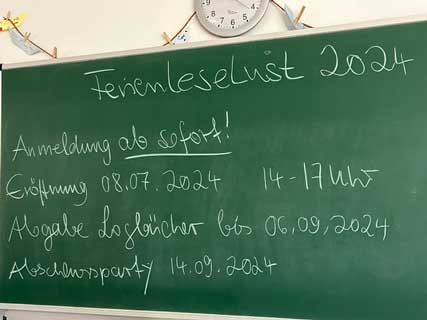 Ferienleselust 2024
Anmeldung ab sofort!
Eröffnung 08.07.2024 14-17 Uhr
Abgabe Logbücher bis 06.09.2024
Abschlussparty 14.09.2024